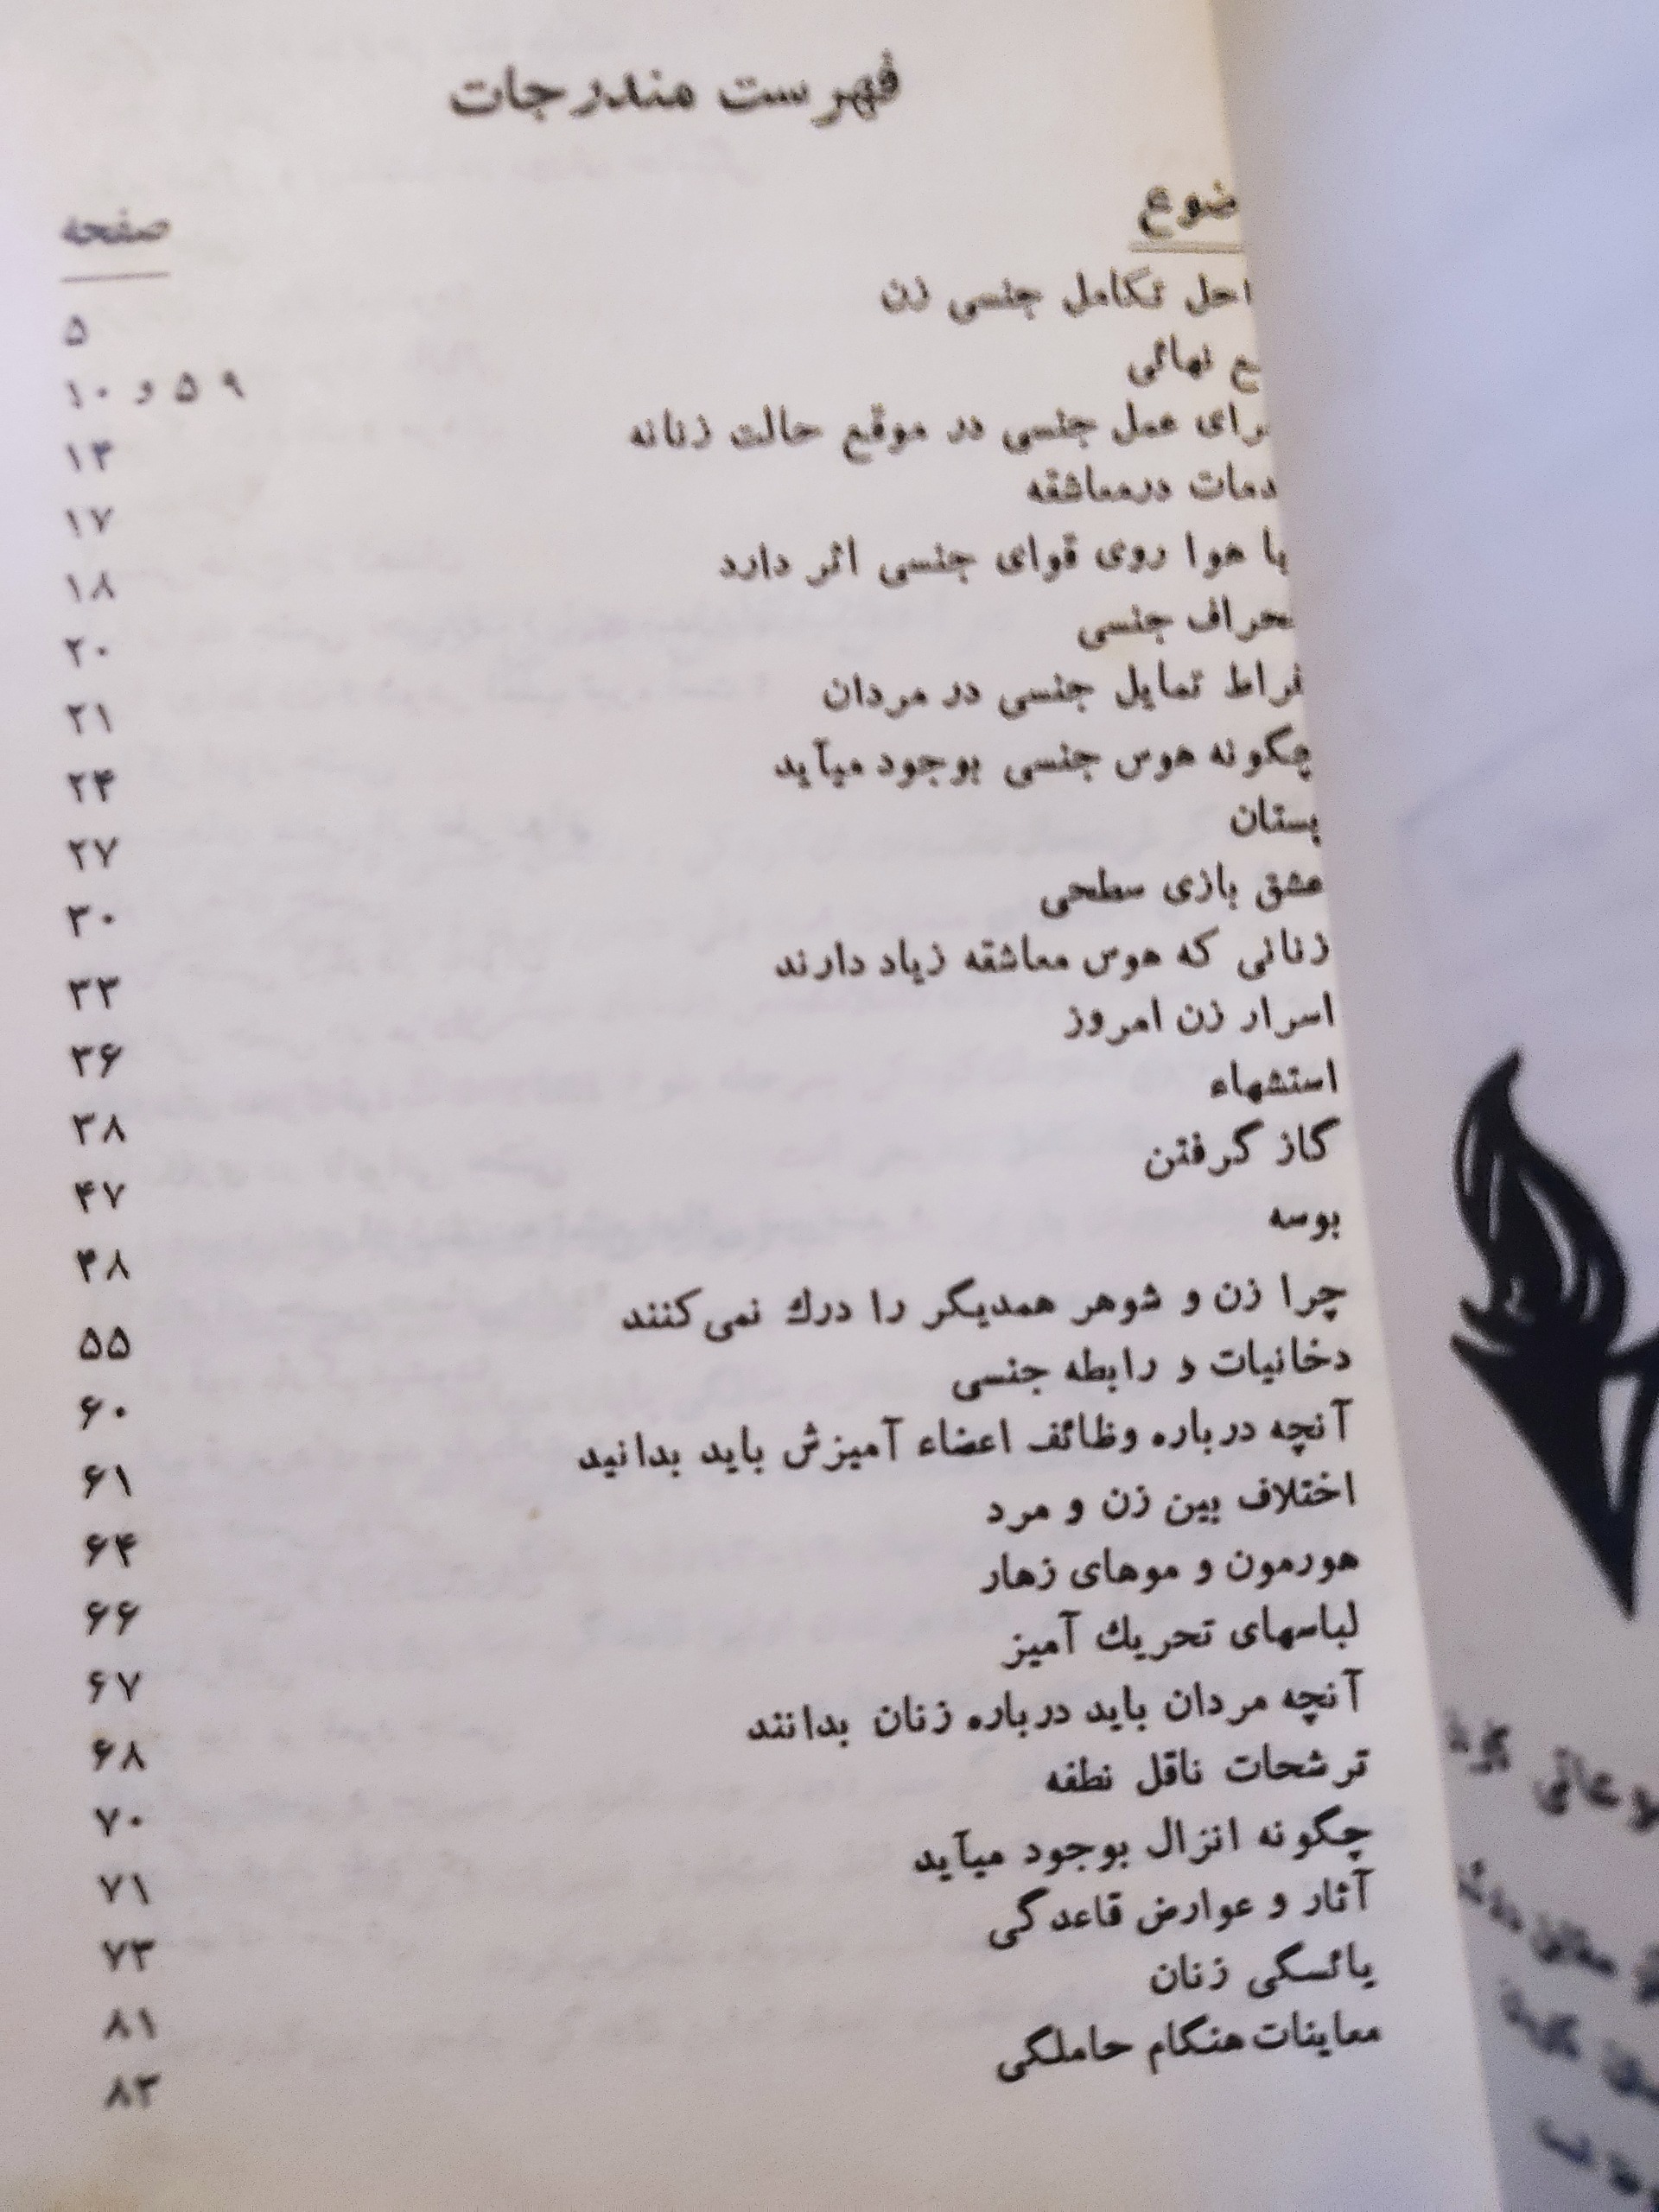 فهرست مندرجات
ضوع
صفحه
احل تکامل جنسی زن ۵
ع نهائی ۹ ۵ و ۱۰
رای عمل جنسی در موقع حالت زنانه ۱۴
دمات درمعاشقه ۱۷
یا هوا روی قوای جنسی اثر دارد ۱۸
حراف جنسی ۲۰
فراط تمایل جنسی در مردان ۲۱
چگونه هوس جنسی بوجود میآید ۲۴
پستان ۲۷
عشق بازی سطحی ۳۰
زنانی که هوس معاشقه زیاد دارند ۳۳
اسرار زن امروز ۳۶
استشهاء ۳۸
گاز گرفتن ۴۷
بوسه ۴۸
چرا زن و شوهر همدیگر را درك نمی‌کنند ۵۵
دخانیات و رابطه جنسی ۶۰
آنچه درباره وظائف اعضاء آمیزش باید بدانید ۶۱
اختلاف بین زن و مرد ۶۴
هورمون و موهای زهار ۶۶
لباسهای تحریك آمیز ۶۷
آنچه مردان باید درباره زنان بدانند ۶۸
ترشحات ناقل نطفه ۷۰
چگونه انزال بوجود میآید ۷۱
آثار و عوارض قاعدگی ۷۳
یائسگی زنان ۸۱
معاینات هنگام حاملگی ۸۳